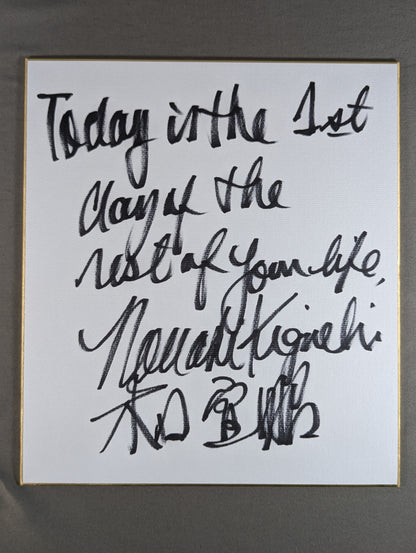 Today is the 1st
day of the
rest of your life,
Noriaki Kiguchi
木口宣